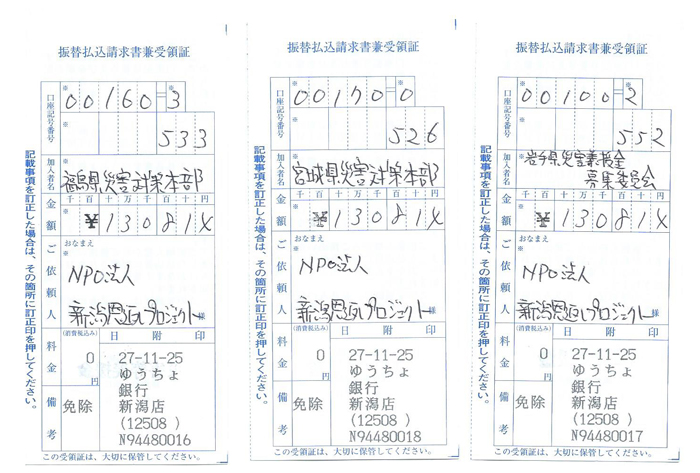 振替払込請求書兼受領証
口座記号番号
※
00160=3
※
※
533
加入者名
※
福島県災害対策本部
金額
千 百 十 万 千 百 十 円
※
¥13081
ご依頼人
おなまえ
※
NPO法人
新潟恩返しプロジェクト様
料金
(消費税込み)
0
円
日 附 印
27-11-25
ゆうちょ
銀行
新潟店
(12508 )
N94480016
備考
免除
記載事項を訂正した場合は、その箇所に訂正印を押してください。
この受領証は、大切に保管してください。
振替払込請求書兼受領証
口座記号番号
※
00170=0
※
※
526
加入者名
※
宮城県災害対策本部
金額
千 百 十 万 千 百 十 円
※
¥13081
ご依頼人
おなまえ
※
NPO法人
新潟恩返しプロジェクト様
料金
(消費税込み)
0
円
日 附 印
27-11-25
ゆうちょ
銀行
新潟店
(12508 )
N94480018
備考
免除
記載事項を訂正した場合は、その箇所に訂正印を押してください。
この受領証は、大切に保管してください。
振替払込請求書兼受領証
口座記号番号
※
00100=2
※
※
552
加入者名
※
岩手県災害義援金
募集委員会
金額
千 百 十 万 千 百 十 円
※
¥13081
ご依頼人
おなまえ
※
NPO法人
新潟恩返しプロジェクト様
料金
(消費税込み)
0
円
日 附 印
27-11-25
ゆうちょ
銀行
新潟店
(12508 )
N94480017
備考
免除
記載事項を訂正した場合は、その箇所に訂正印を押してください。
この受領証は、大切に保管してください。